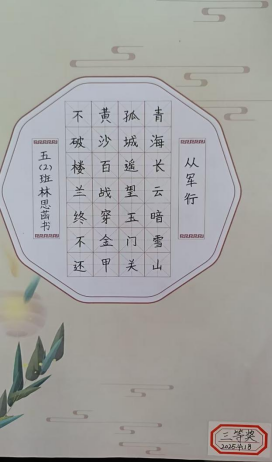 从军行
青海长云暗雪山
孤城遥望玉门关
黄沙百战穿金甲
不破楼兰终不还
五(2)班林思茜书
三等奖